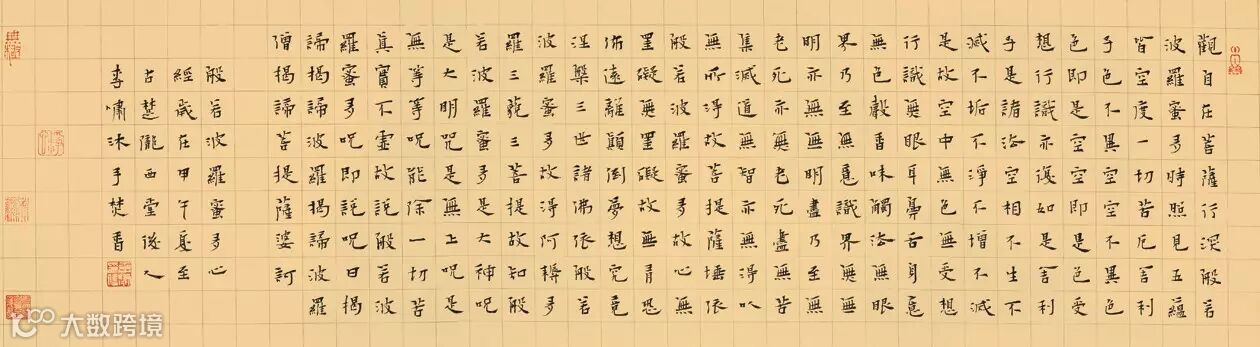 觀自在菩薩行深般若
波羅蜜多時照見五蘊
皆空度一切苦厄舍利
子色不異空空不異色
色即是空空即是色受
想行識亦復如是舍利
子是諸法空相不生不
滅不垢不淨不增不減
是故空中無色無受想
行識無眼耳鼻舌身意
無色聲香味觸法無眼
界乃至無意識界無無
明亦無無明盡乃至無
老死亦無老死盡無苦
集滅道無智亦無得以
無所得故菩提薩埵依
般若波羅蜜多故心無
罣礙無罣礙故無有恐
怖遠離顛倒夢想究竟
涅槃三世諸佛依般若
波羅蜜多故得阿耨多
羅三藐三菩提故知般
若波羅蜜多是大神呪
是大明呪是無上呪是
無等等呪能除一切苦
真實不虛故說般若波
羅蜜多呪即說呪曰揭
諦揭諦波羅揭諦波羅
僧揭諦菩提薩婆訶
般若波羅蜜多心
經歲在甲午夏至
古楚隴西堂後人
李嘯沐手焚香
大数跨境